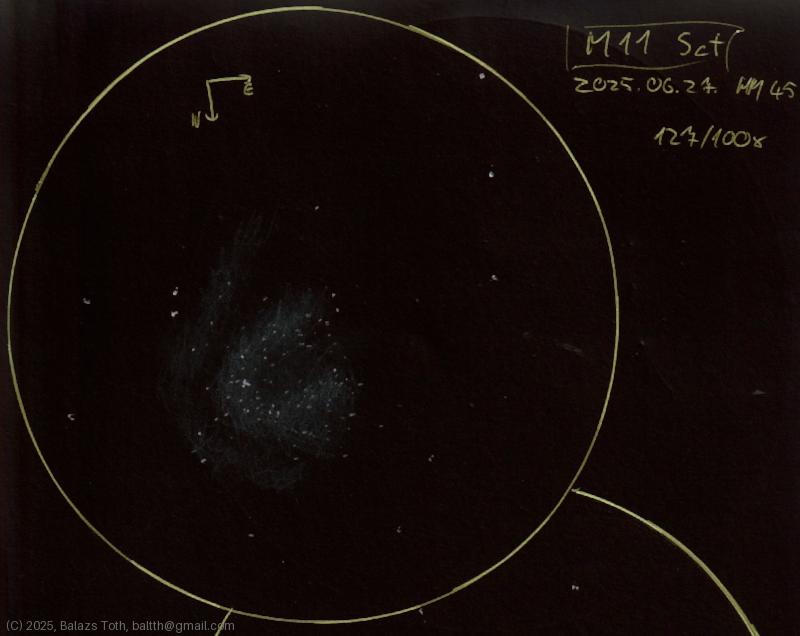 M11 Sct
2025.06.27. HM 45
127/100x
E
N
(C) 2025, Balazs Toth, baltth@gmail.com